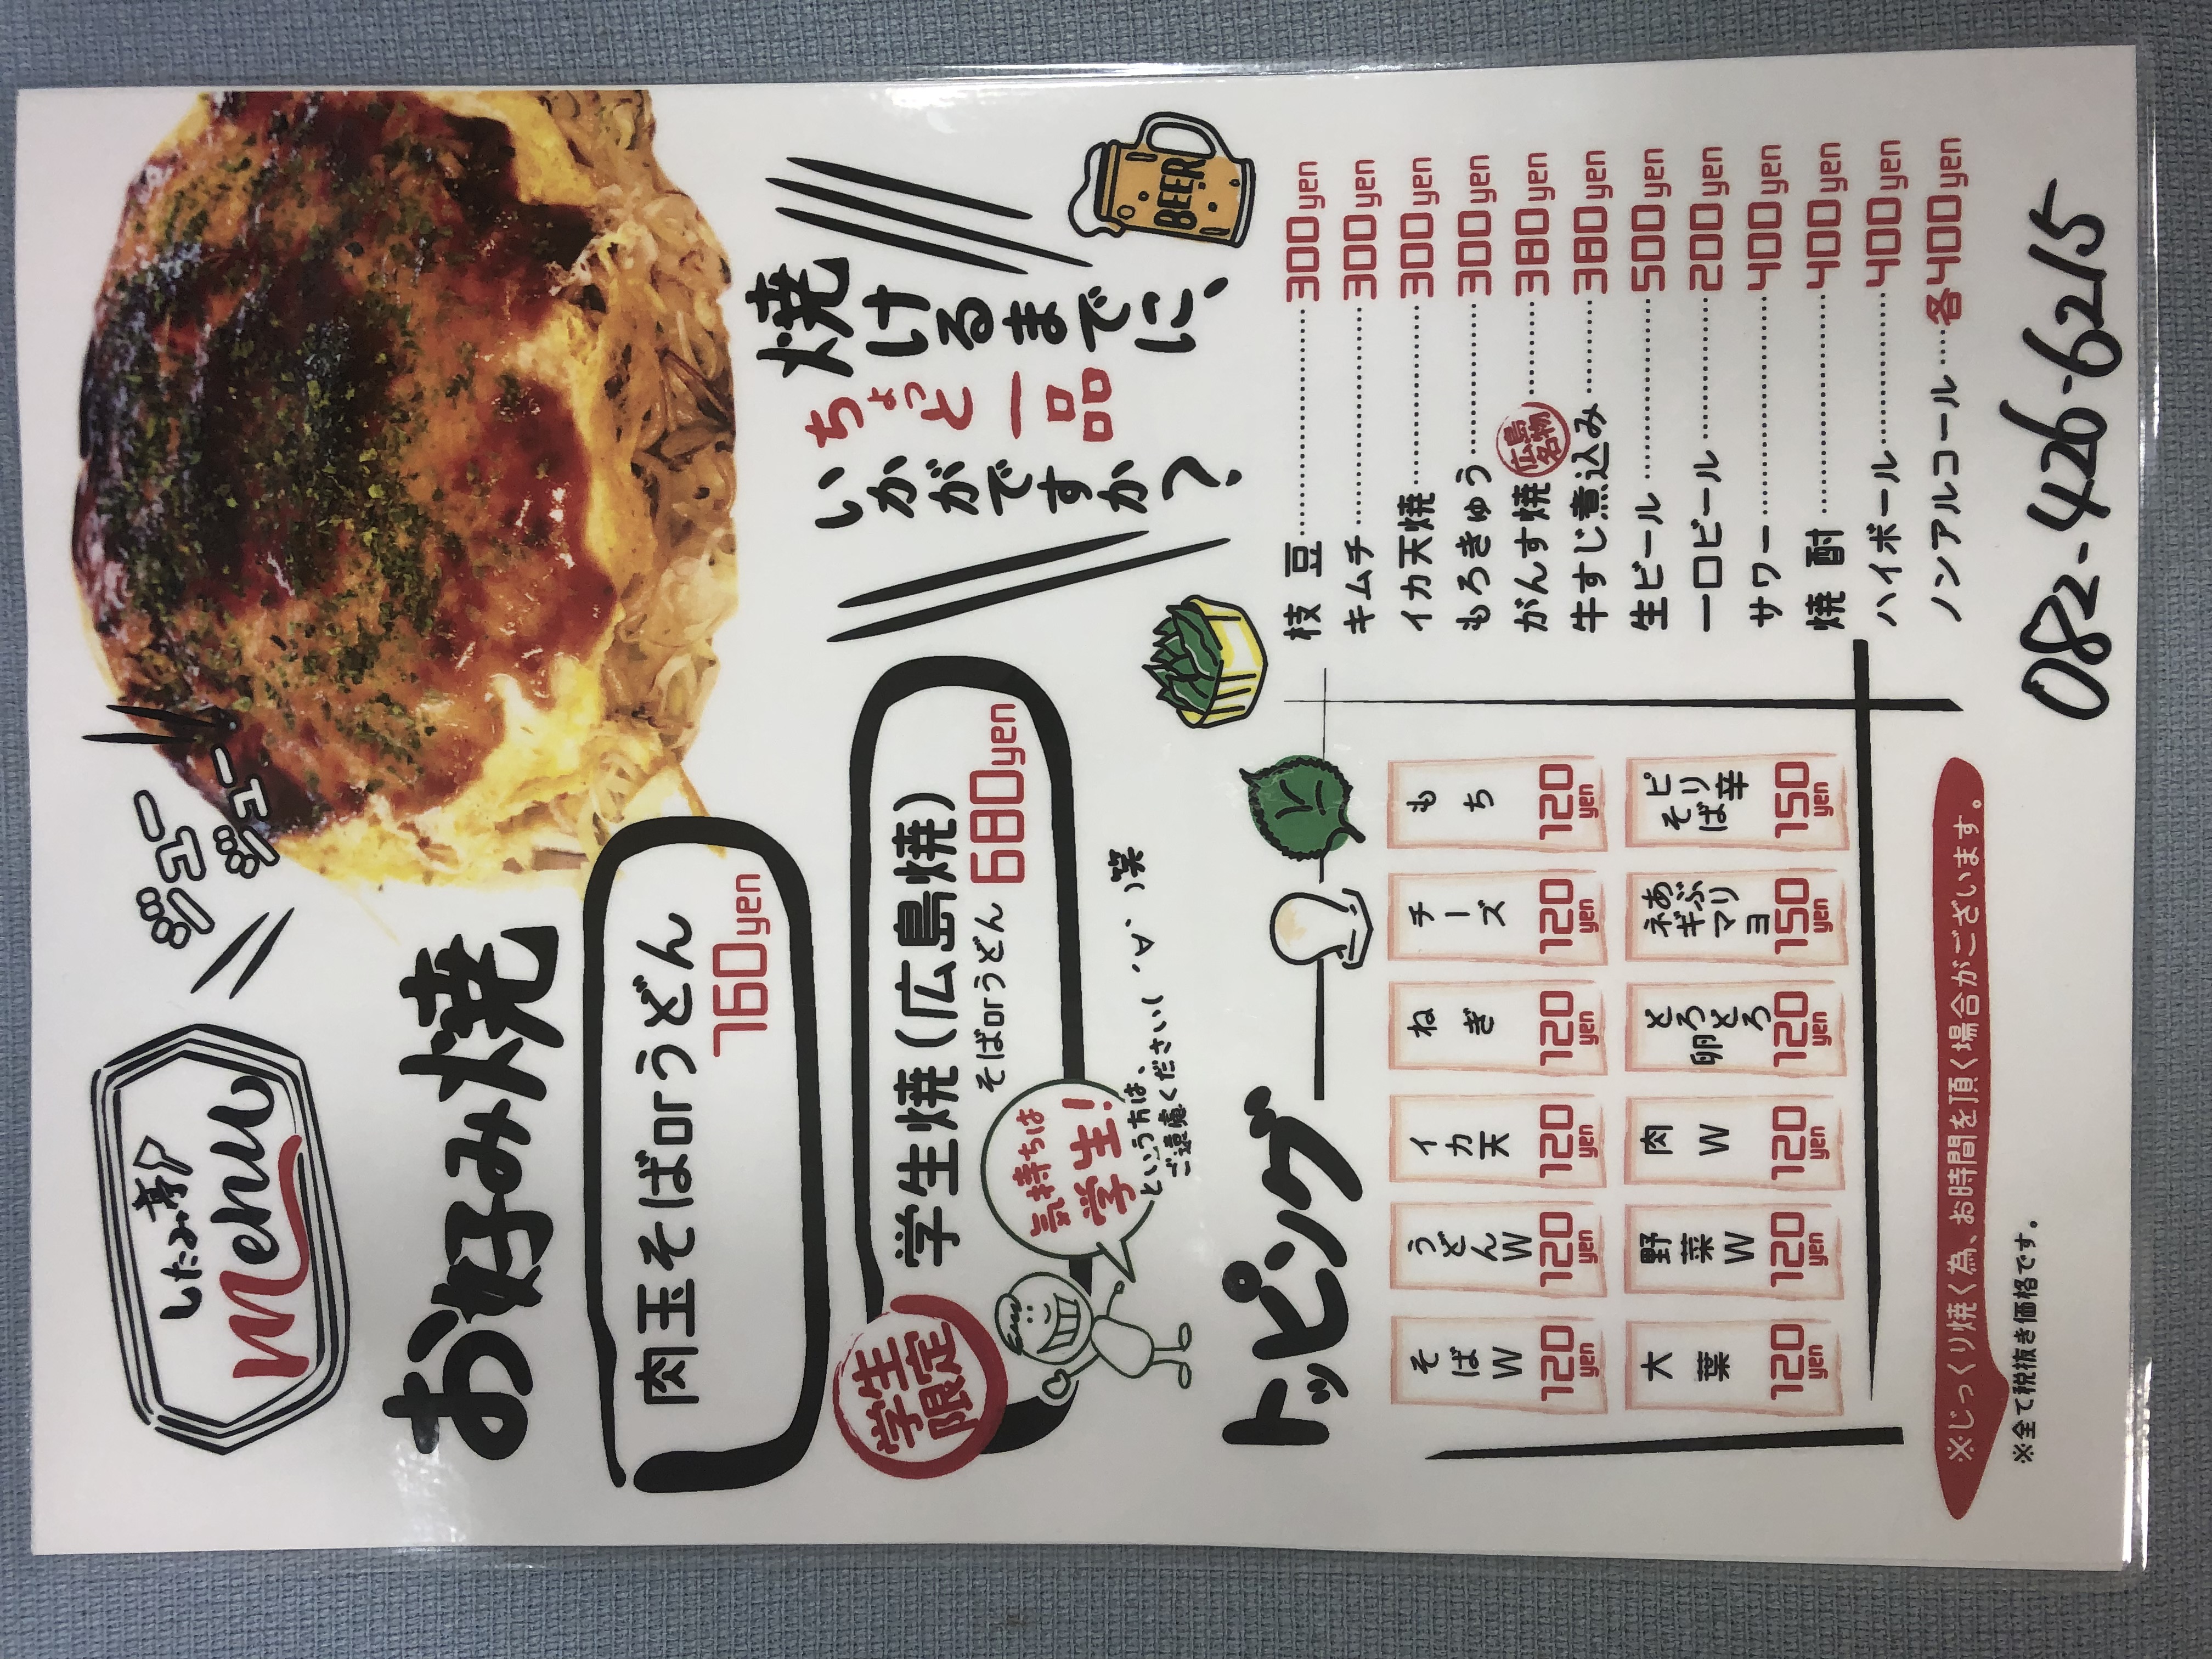 したみ亭
Menu
ジュー
ジュー
お好み焼
肉玉そばorうどん
760yen
学生限定
学生焼(広島焼)
そばorうどん 680yen
気持ちは
学生!
という方は、
ご遠慮ください( ´∀` )笑
焼けるまでに、
ちょっと一品
いかがですか?
BEER
トッピング
そばW 120yen
うどんW 120yen
イカ天 120yen
ねぎ 120yen
チーズ 120yen
もち 120yen
大葉 120yen
野菜W 120yen
肉W 120yen
とろとろ卵 120yen
あぶりネギマヨ 150yen
ピリ辛そば 150yen
枝豆 300yen
キムチ 300yen
イカ天焼 300yen
もろきゅう 300yen
がんす焼 広島名物 380yen
牛すじ煮込み 380yen
生ビール 500yen
一口ビール 200yen
サワー 400yen
焼酎 400yen
ハイボール 400yen
ノンアルコール 各400yen
※じっくり焼く為、お時間を頂く場合がございます。
※全て税抜き価格です。
082-426-6215